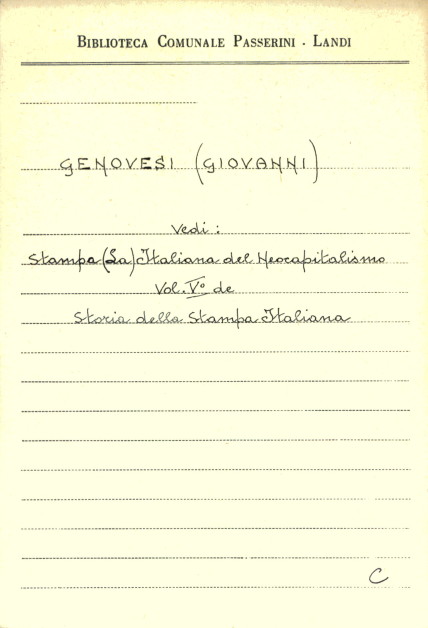 BIBLIOTECA COMUNALE PASSERINI - LANDI
GENOVESI (GIOVANNI)
Vedi:
Stampa (La) Italiana del Neocapitalismo
Vol. Vº de
Storia della Stampa Italiana
C